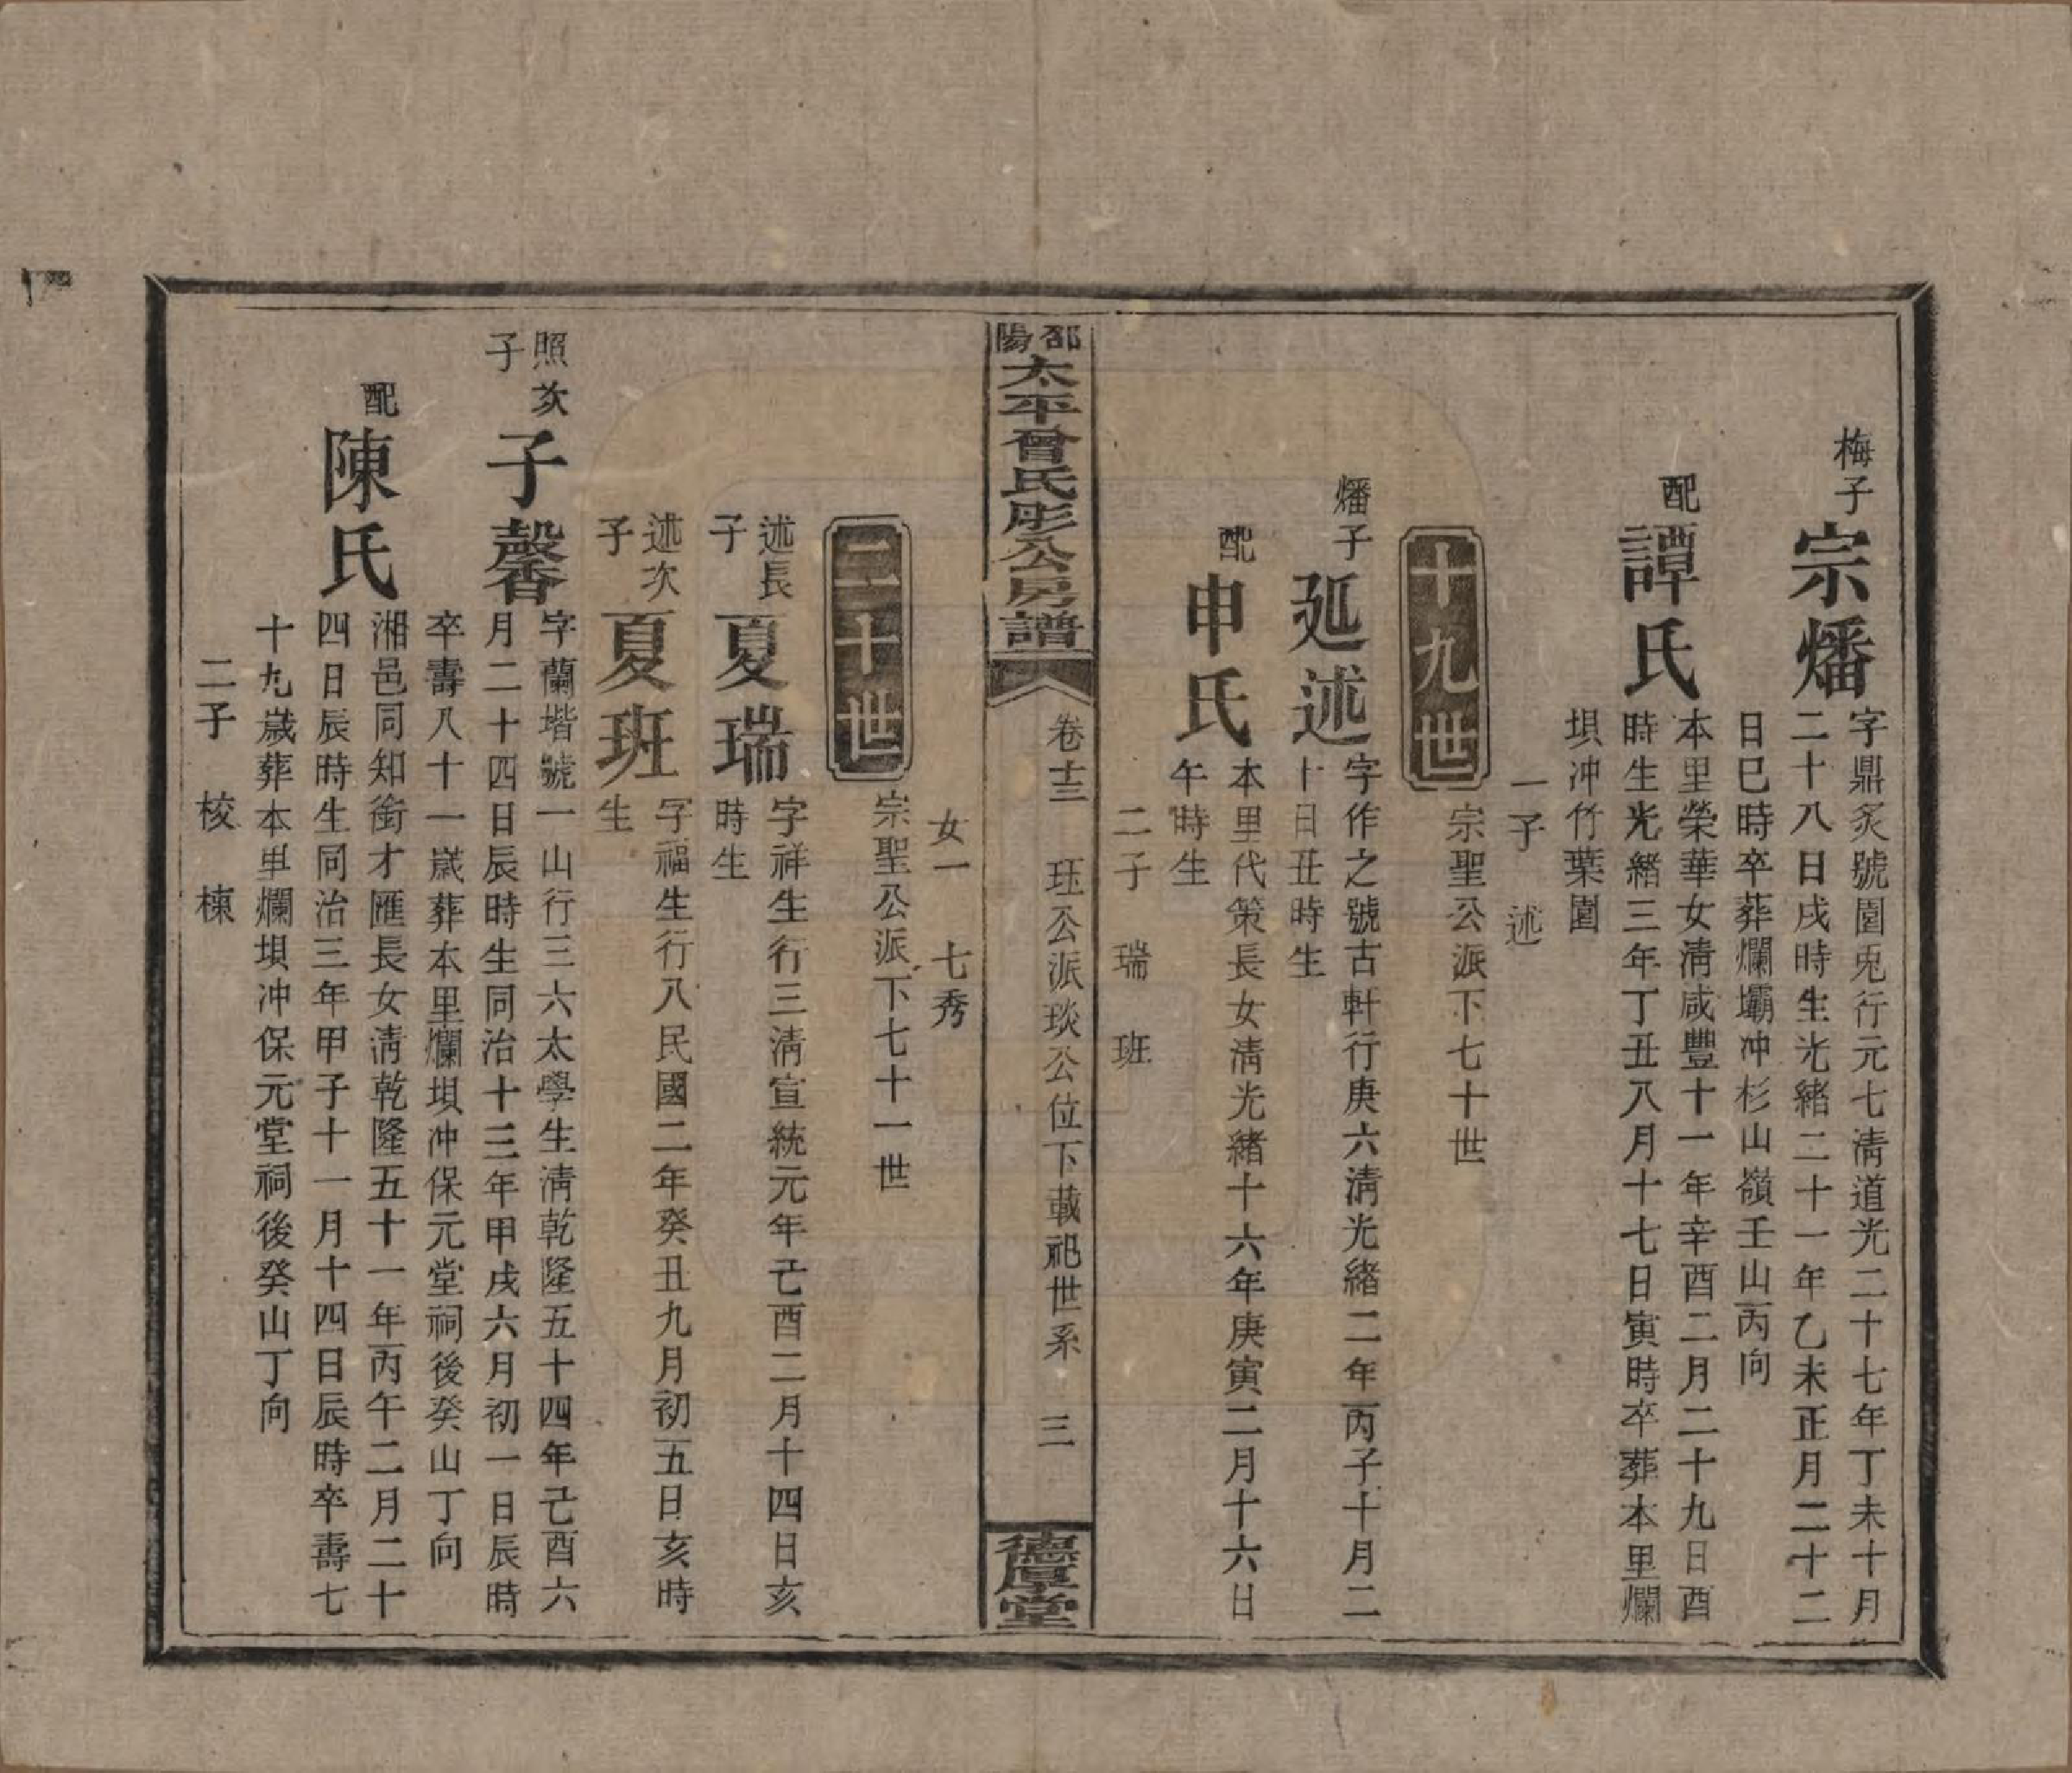 梅子
宗燔
字鼎炙號園兎行元七清道光二十七年丁未十月
二十八日戌時生光緒二十一年乙未正月二十二
日巳時卒葬爛壩冲杉山嶺壬山丙向
配
譚氏
本里榮華女清咸豐十一年辛酉二月二十九日酉
時生光緒三年丁丑八月十七日寅時卒葬本里爛
垻冲竹葉園
一子　述
十九世
宗聖公派下七十世
燔子
延述
字作之號古軒行庚六清光緒二年丙子十月二
十日丑時生
配
申氏
本里代策長女清光緒十六年庚寅二月十六日
午時生
二子　瑞　班
邵陽
太平曾氏彤公房譜
卷十三　珏公派琰公位下載祀世系　三
德厚堂
女一　七秀
二十世
宗聖公派下七十一世
述長子
夏瑞
字祥生行三清宣統元年己酉二月十四日亥
時生
述次子
夏班
字福生行八民國二年癸丑九月初五日亥時
生
照次子
子馨
字蘭堦號一山行三六太學生清乾隆五十四年己酉六
月二十四日辰時生同治十三年甲戌六月初一日辰時
卒壽八十一歲葬本里爛垻冲保元堂祠後癸山丁向
配
陳氏
湘邑同知銜才匯長女清乾隆五十一年丙午二月二十
四日辰時生同治三年甲子十一月十四日辰時卒壽七
十九歲葬本里爛垻冲保元堂祠後癸山丁向
二子　梭　棟